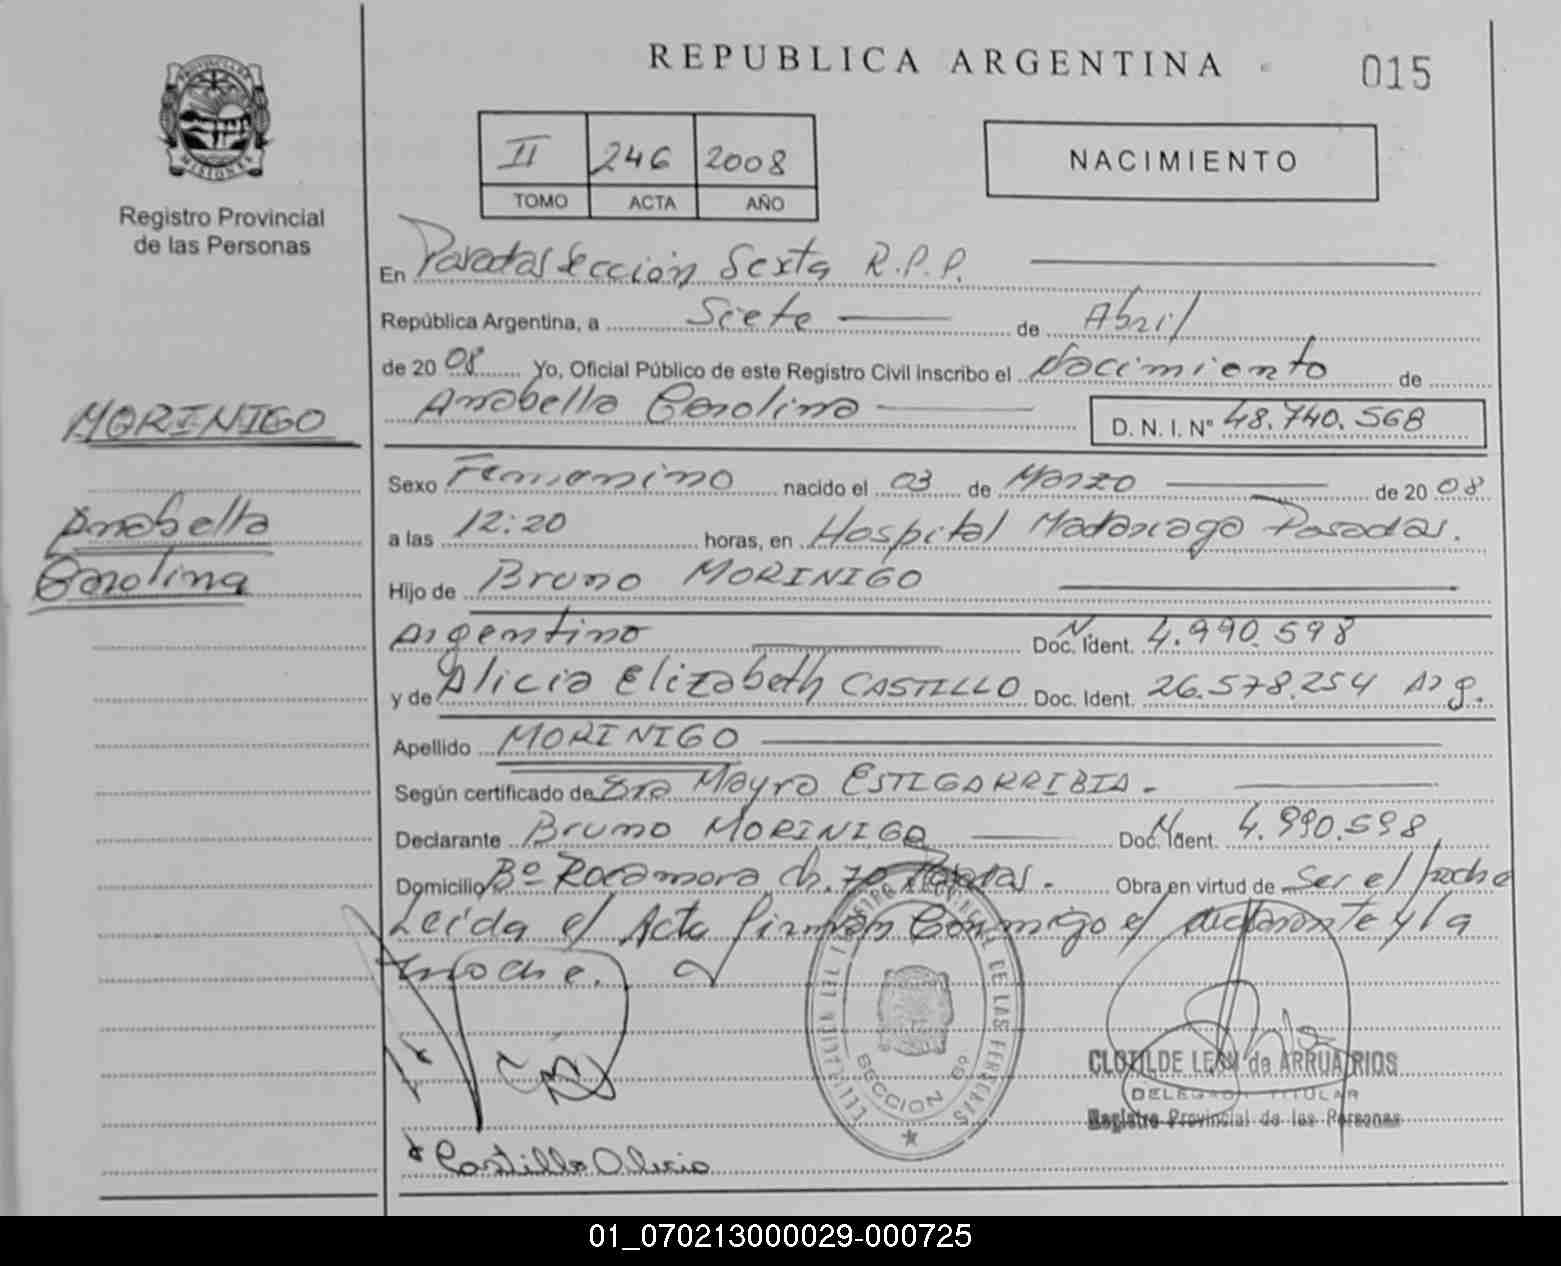 REPUBLICA ARGENTINA
015
PROVINCIA DE
MISIONES
Registro Provincial
de las Personas
II 246 2008
TOMO ACTA AÑO
NACIMIENTO
En Posadas Sección Sexta R.P.P.
República Argentina, a Siete de Abril
de 20 08 Yo, Oficial Público de este Registro Civil inscribo el Nacimiento de
Anabella Carolina
D. N. I. Nº 48.740.568
MORINIGO
Anabella
Carolina
Sexo Femenino nacido el 03 de Marzo de 20 08
a las 12:20 horas, en Hospital Madariaga Posadas.
Hijo de Bruno MORINIGO
Argentino Doc. Ident. N. 4.990.598
y de Alicia Elizabeth CASTILLO Doc. Ident. 26.578.254 Arg.
Apellido MORINIGO
Según certificado de Dra Mayra ESTIGARRIBIA.
Declarante Bruno MORINIGO Doc. Ident. N. 4.990.598
Domicilio Bº Rocamora Ch. 70 Posadas. Obra en virtud de Ser el padre
Leída el Acta firman Conmigo el declarante y la
madre.
DE LAS PERSONAS
SECCION 6ª
CLOTILDE LEAN de ARRUA RIOS
DELEGADA TITULAR
Registro Provincial de las Personas
Castillo Alicia
01_070213000029-000725